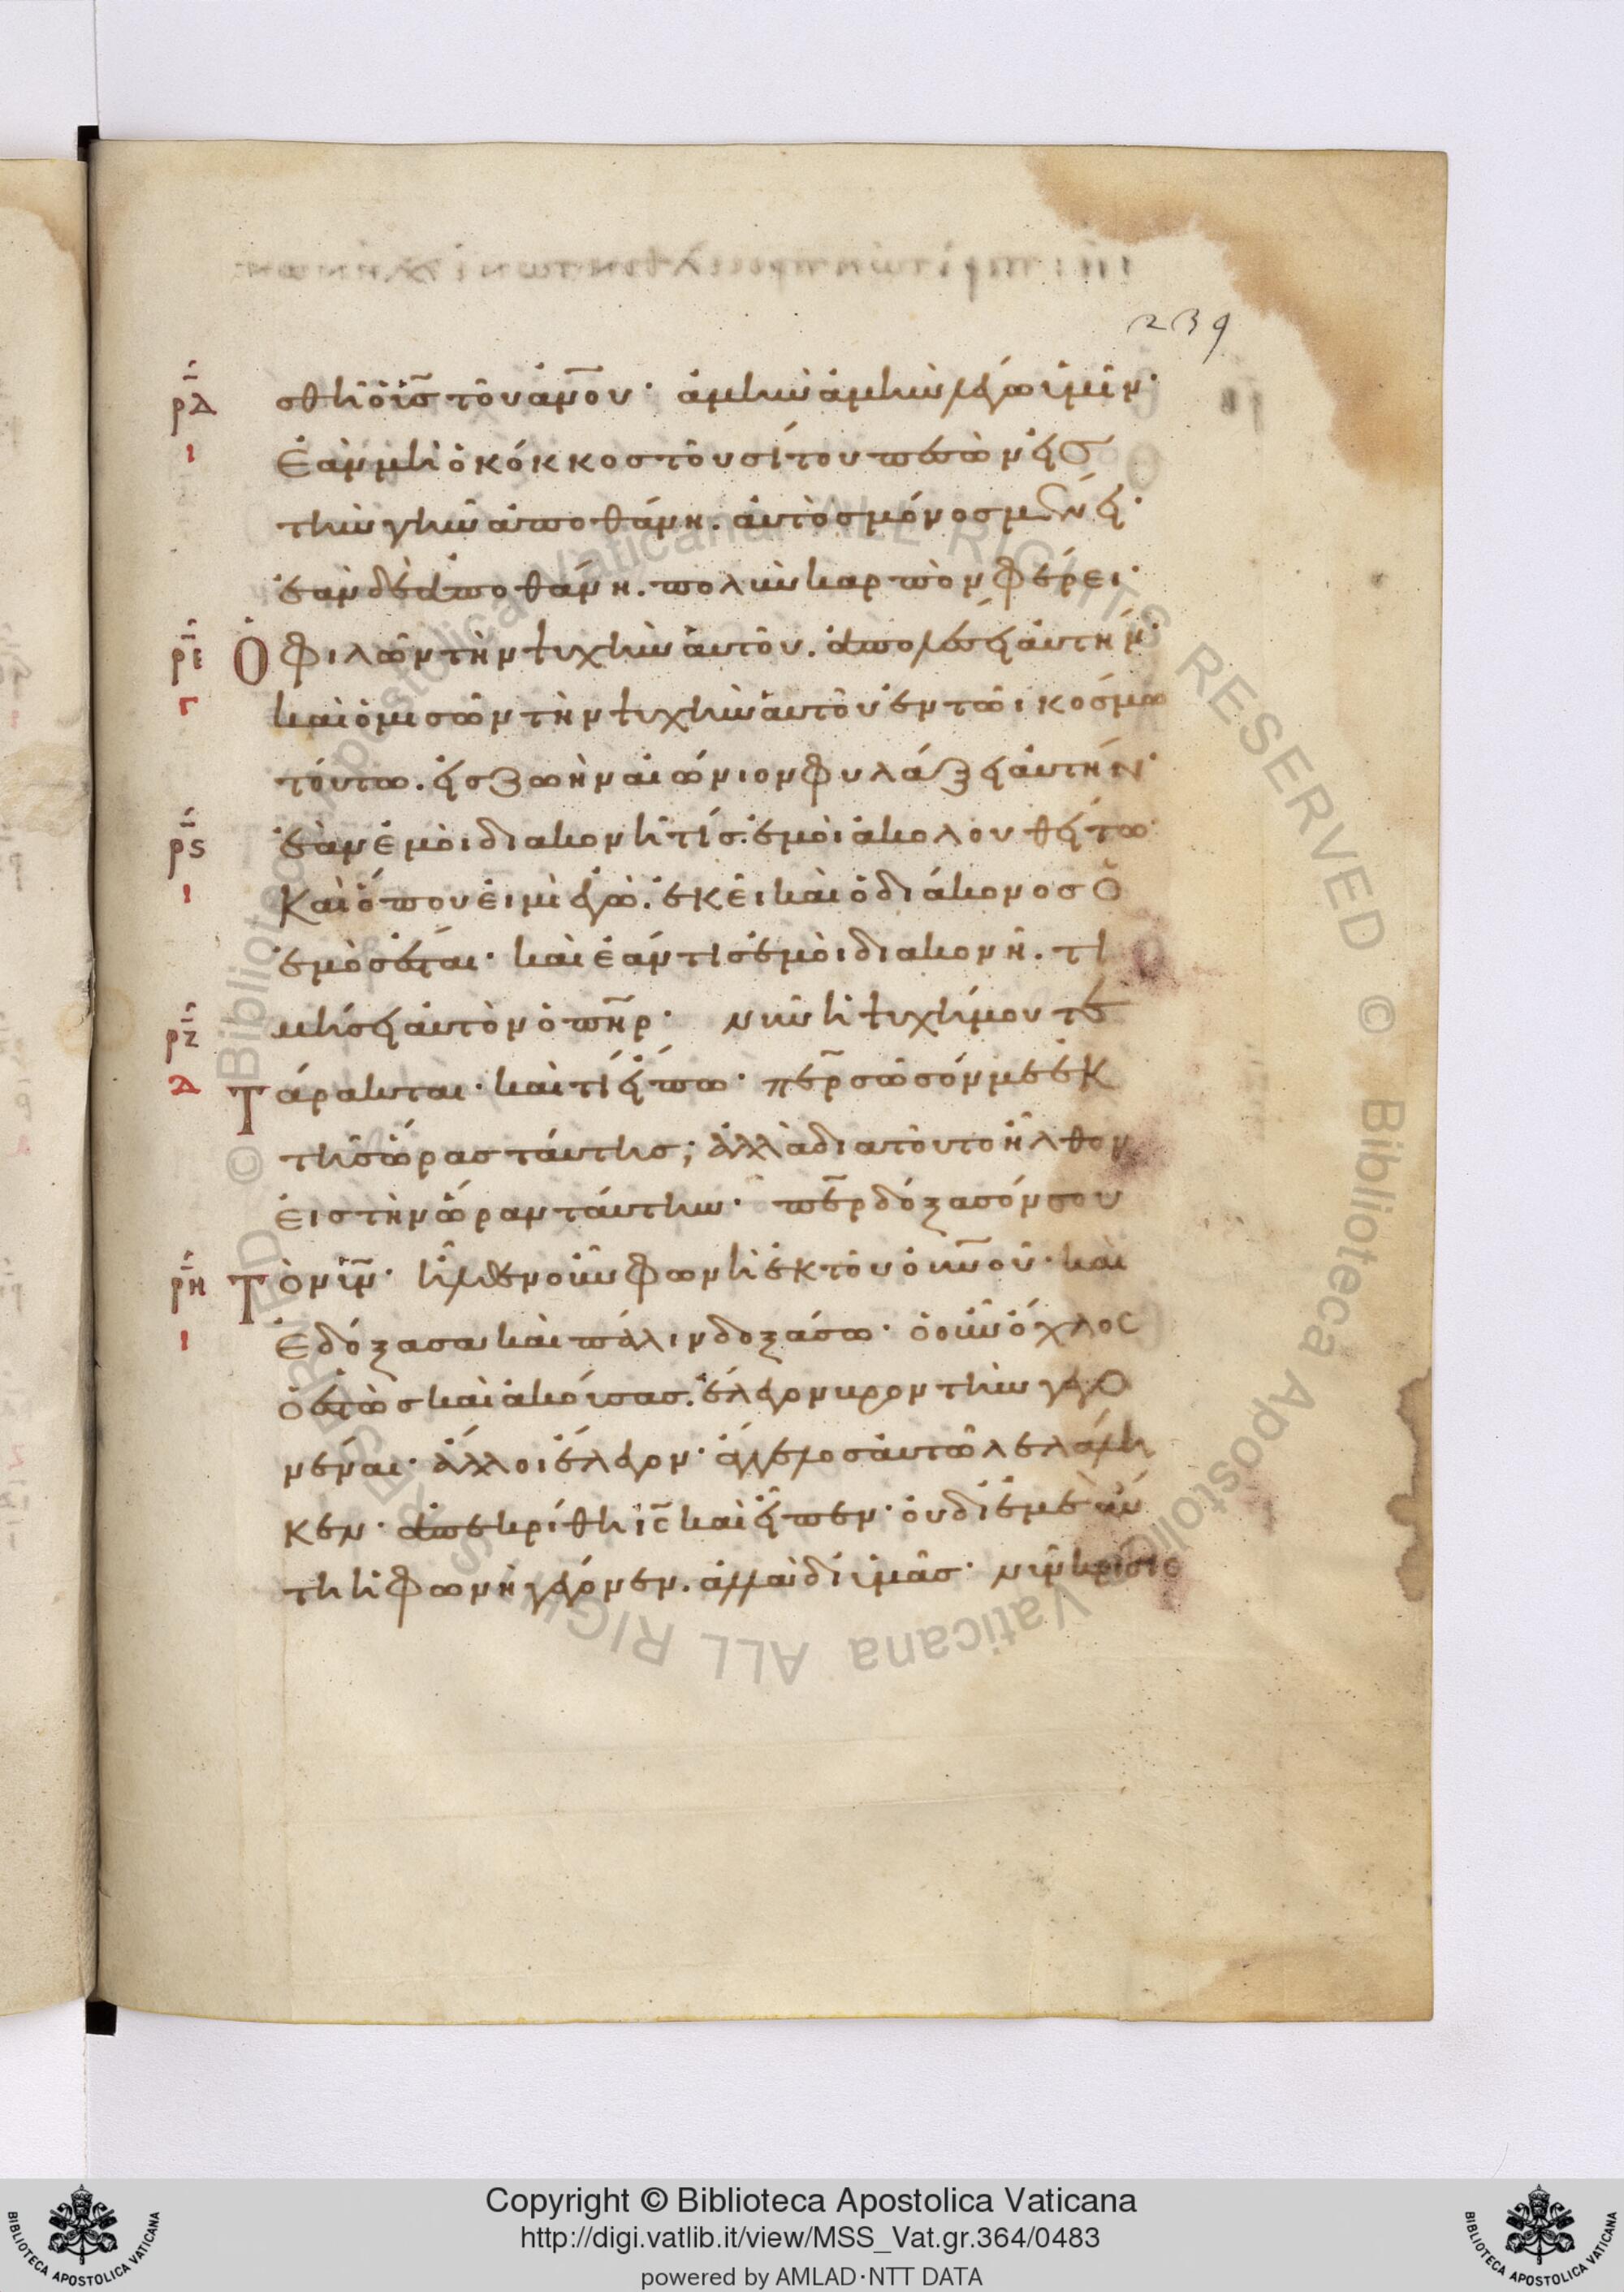 239
σθῆ ὁ ῡῑς τοῦ ἀν̅ου· ἀμὴν ἀμὴν λέγω ὑμῖν·
ἐὰν μὴ ὁ κόκκος τοῦ σίτου πεσὼν εἰς
τὴν γῆν ἀποθάνη. αὐτὸς μόνος μένει·
ἐὰν δὲ ἀποθάνη. πολὺν καρπὸν φέρει·
ὁ φιλῶν τὴν ψυχὴν αὐτοῦ. ἀπολέσει αὐτήν·
καὶ ὁ μισῶν τὴν ψυχὴν αὐτοῦ ἐν τῶι κόσμω
τούτω. εἰς ζωὴν αἰώνιον φυλάξει αὐτήν·
ἐὰν ἐμοὶ διακονῆ τίς. ἐμοὶ ἀκολουθείτω·
Καὶ ὅπου εἰμὶ ἐγὼ. ἐκεῖ καὶ ὁ διάκονος ὁ
ἐμὸς ἔσται· καὶ ἐάν τις ἐμοὶ διακονῆ. τι
μήσει αὐτὸν ὁ πη̅ρ· νῦν ἡ ψυχή μου τε
Τάρακται· καὶ τί εἴπω· πε̅ρ σῶσόν με ἐκ
τῆς ὥρας ταύτης; ἀλλὰ διατοῦτο ἦλθον
εἰς τὴν ὥραν ταύτην· πε̅ρ δόξασόν σου
Τὸν υἱ̅ν· ἦλθεν οὖν φωνὴ ἐκ τοῦ ουν̅οῦ· καὶ
Ἐδόξασα καὶ πάλιν δοξάσω· ὁ οὖν ὄχλος
ὁ ἑστὼς καὶ ἀκούσας. ἔλεγον βροντὴν γεγο
νέναι· ἄλλοι ἔλεγον· ἄγγελος αὐτῶ λελάλη
κεν· ἀπεκρίθη ι̅ς̅ καὶ εἶπεν· οὐ δι ἐμὲ αὕ
τη ἡ φωνὴ γέγονεν. ἀλλὰ δι ὑμᾶς· νῦν κρίσις
ρ̅δ
ι
ρ̅ε
γ
ρ̅ς
ι
ρ̅ζ
δ
ρ̅η
ι
© Biblioteca Apostolica Vaticana ALL RIGHTS RESERVED © Biblioteca Apostolica Vaticana ALL RIGHTS RESERVED
BIBLIOTECA APOSTOLICA VATICANA
Copyright © Biblioteca Apostolica Vaticana
http://digi.vatlib.it/view/MSS_Vat.gr.364/0483
powered by AMLAD·NTT DATA
BIBLIOTECA APOSTOLICA VATICANA